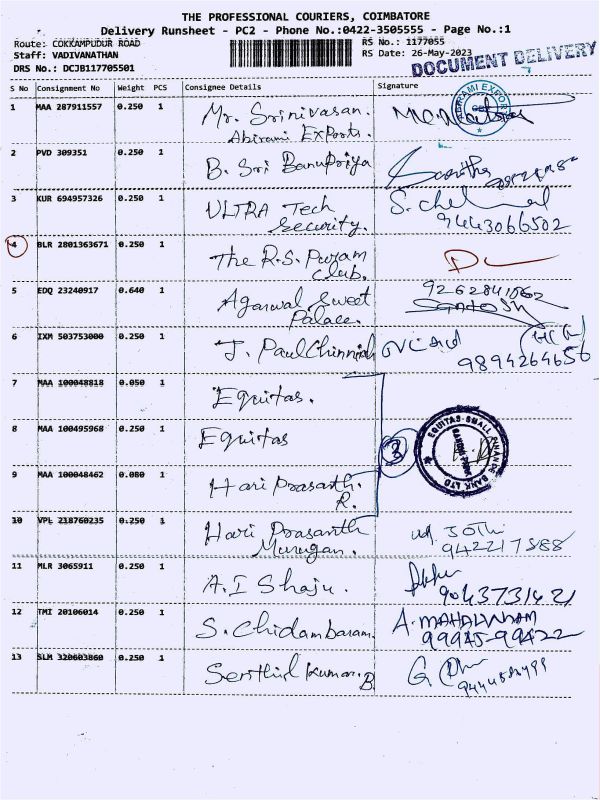 THE PROFESSIONAL COURIERS, COIMBATORE
Delivery Runsheet - PC2 - Phone No.:0422-3505555 - Page No.:1
Route: COKKAMPUDUR ROAD
RS No.: 1177055
Staff: VADIVANATHAN
RS Date: 26-May-2023
DRS No.: DCJB117705501
DOCUMENT DELIVERY
S No Consignment No Weight PCS Consignee Details Signature
1 MAA 287911557 0.250 1 Mr. Srinivasan.
Abirami Exports.
ABIRAMI EXPORTS
2 PVD 309351 0.250 1 B. Sri Banupriya
3 KUR 694957326 0.250 1 ULTRA Tech
Security.
9443066502
4 BLR 2801363671 0.250 1 The R.S. Puram
Club.
5 EDQ 23240917 0.640 1 Agarwal Sweet
Palace.
Santosh
6 IXM 503753000 0.250 1 J. Paul Chinniah
9894264656
7 MAA 100048818 0.050 1 Equitas.
8 MAA 100495968 0.250 1 Equitas
3
EQUITAS SMALL FINANCE BANK LTD
9 MAA 100048462 0.080 1 Hari Prasanth.
R.
10 VPL 218760235 0.250 1 Hari Prasanth
Murugan.
JOTHI
9422217588
11 MLR 3065911 0.250 1 A.I Shaju.
9043731421
12 TMI 20106014 0.250 1 S. Chidambaram.
A. MAHALINGAM
99945-99422
13 SLM 320603860 0.250 1 Senthil Kumar.
B